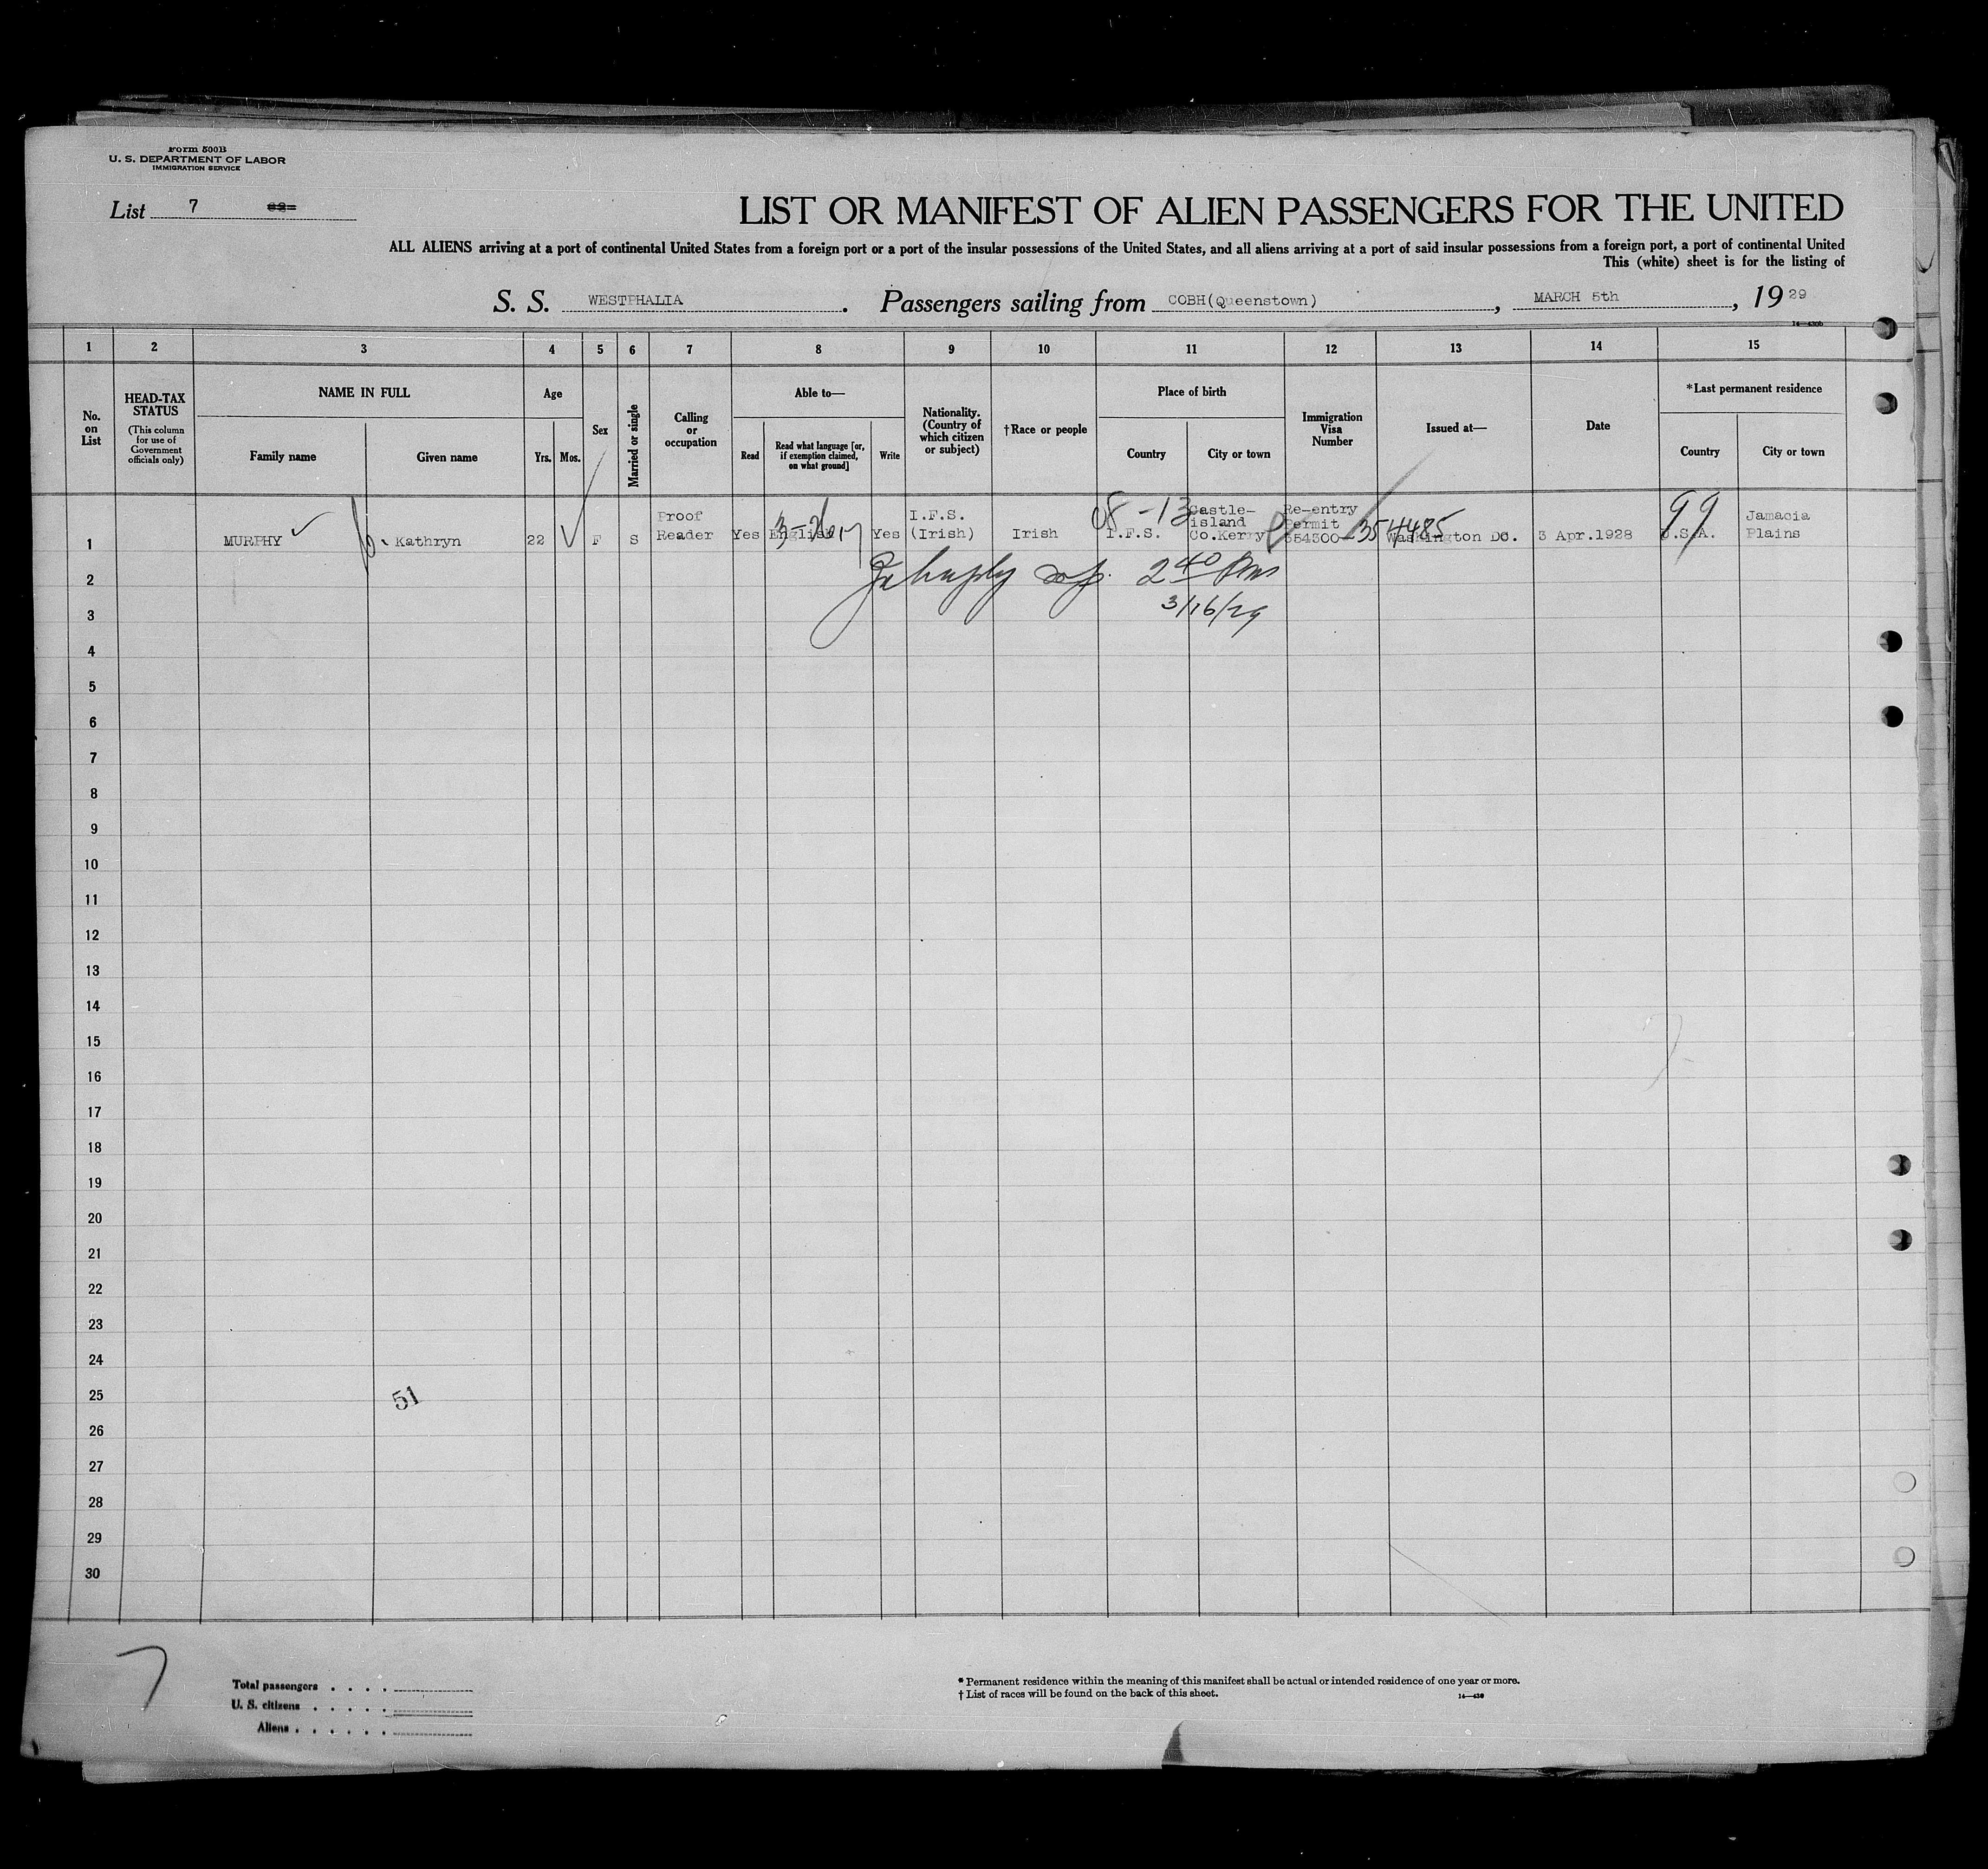 Form 500B
U. S. DEPARTMENT OF LABOR
IMMIGRATION SERVICE
List 7
LIST OR MANIFEST OF ALIEN PASSENGERS FOR THE UNITED
ALL ALIENS arriving at a port of continental United States from a foreign port or a port of the insular possessions of the United States, and all aliens arriving at a port of said insular possessions from a foreign port, a port of continental United
This (white) sheet is for the listing of
S. S. WESTPHALIA. Passengers sailing from COBH(Queenstown), MARCH 5th, 1929
1 2 3 4 5 6 7 8 9 10 11 12 13 14 15
No. on List
HEAD-TAX STATUS
(This column for use of Government officials only)
NAME IN FULL
Family name Given name
Age
Yrs. Mos.
Sex
Married or single
Calling or occupation
Able to—
Read
Read what language [or, if exemption claimed, on what ground]
Write
Nationality. (Country of which citizen or subject)
†Race or people
Place of birth
Country City or town
Immigration Visa Number
Issued at—
Date
*Last permanent residence
Country City or town
1 MURPHY Kathryn 22 F S Proof Reader Yes English Yes I.F.S. (Irish) Irish I.F.S. Castle-island Co.Kerry Re-entry Permit 354485 Washington DC. 3 Apr.1928 U.S.A. Jamacia Plains
08-13
99
2 2 40 Pm
3 3/16/29
4
5
6
7
8
9
10
11
12
13
14
15
16
17
18
19
20
21
22
23
24
25 51
26
27
28
29
30
7
Total passengers . . . .
U. S. citizens . . . . .
Aliens . . . . . .
* Permanent residence within the meaning of this manifest shall be actual or intended residence of one year or more.
† List of races will be found on the back of this sheet.